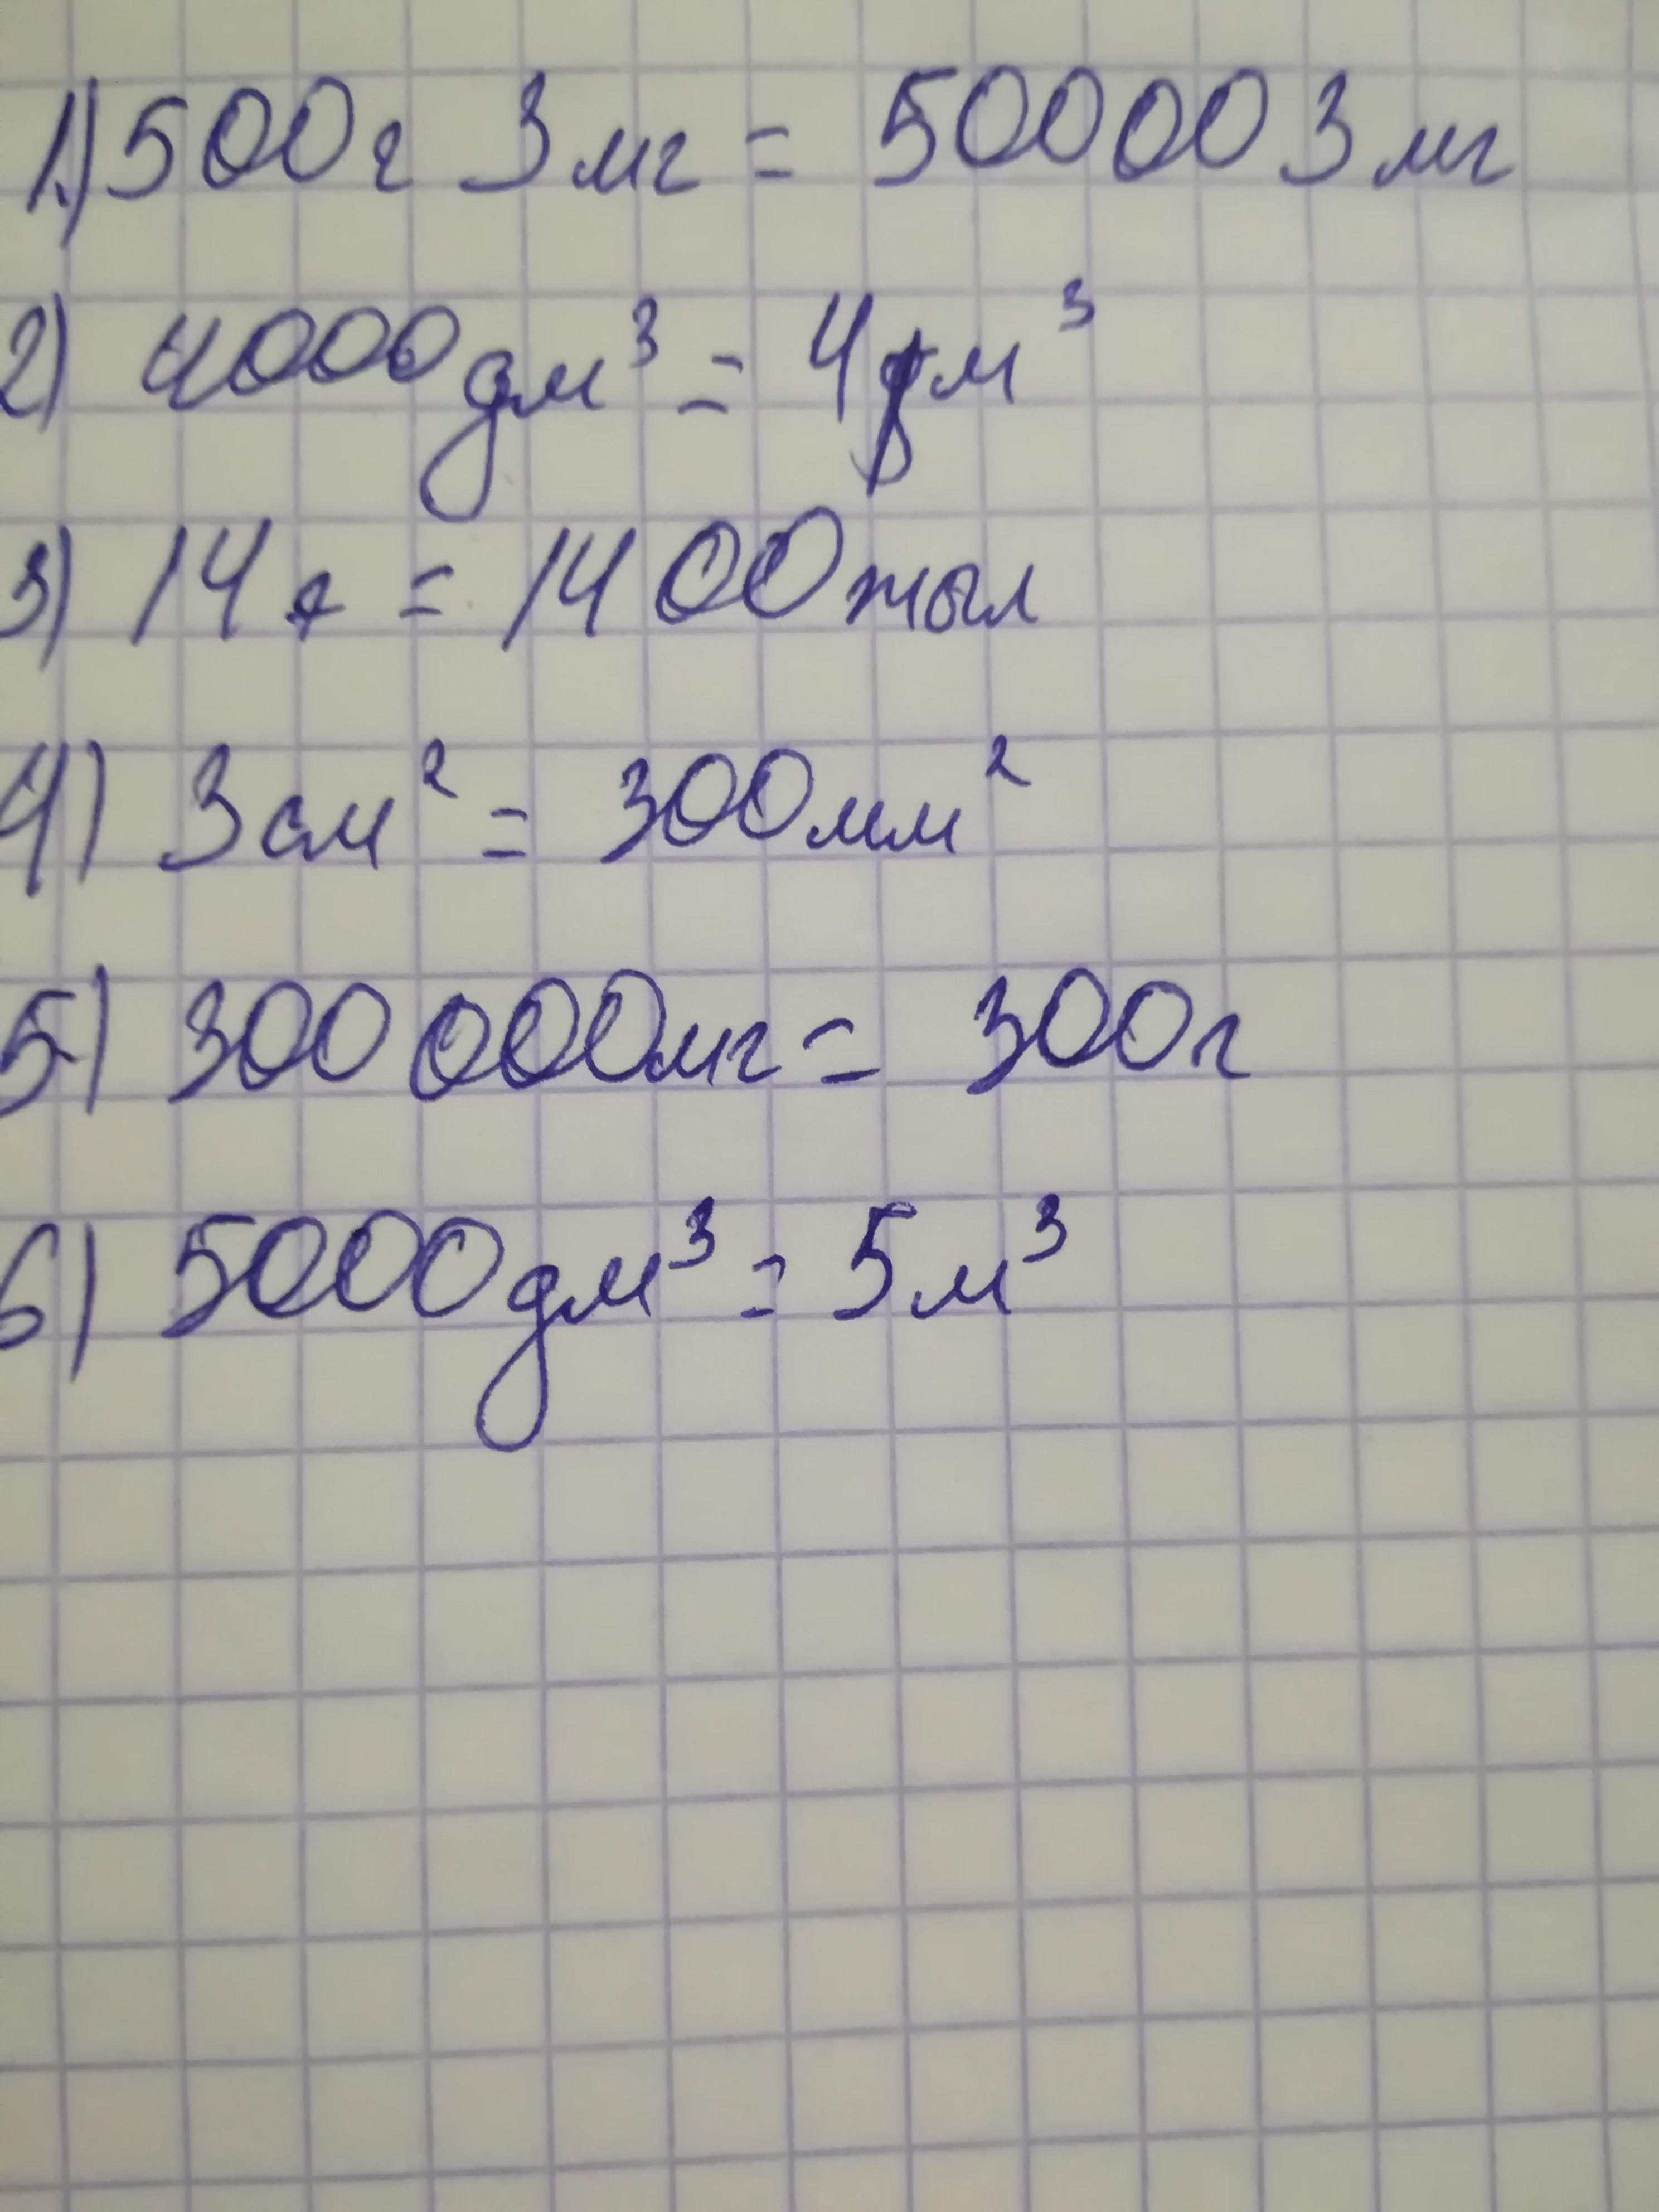 1) 500г 3мг = 500003мг
2) 4000дм³ = 4м³
3) 14 = 1400жыл
4) 3см² = 300мм²
5) 300 000мг = 300г
6) 5000дм³ = 5м³